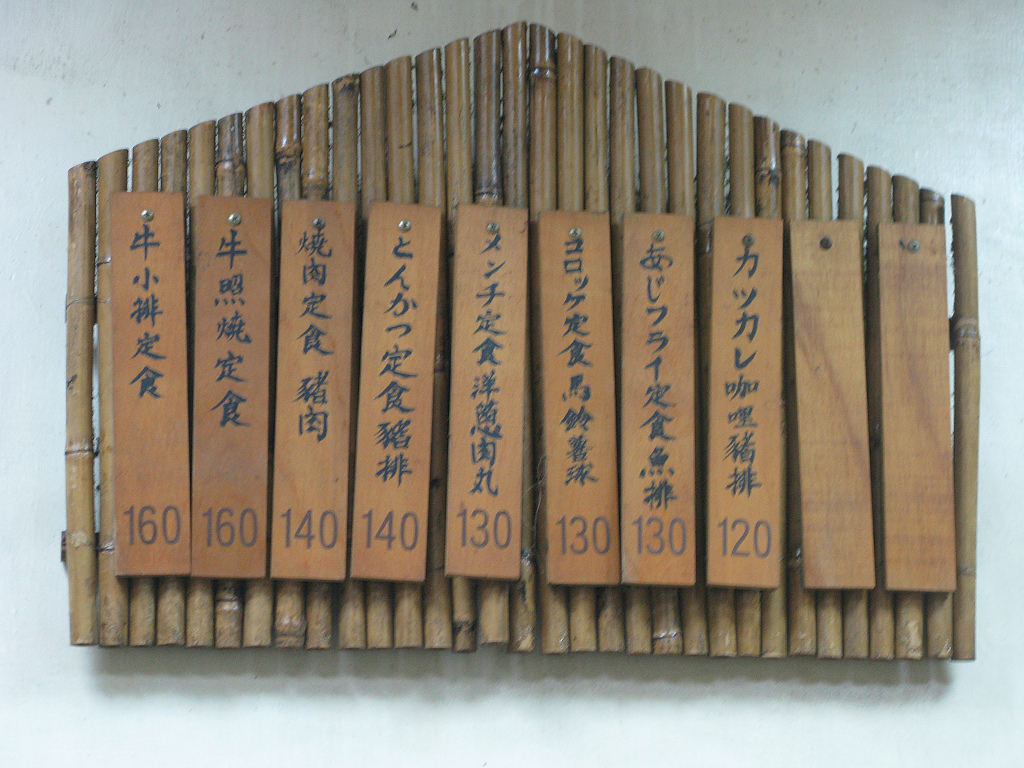 牛小排定食
160
牛照燒定食
160
燒肉定食 豬肉
140
とんかつ定食豬排
140
メンチ定食洋蔥肉丸
130
コロッケ定食馬鈴薯球
130
あじフライ定食魚排
130
カツカレ咖哩豬排
120